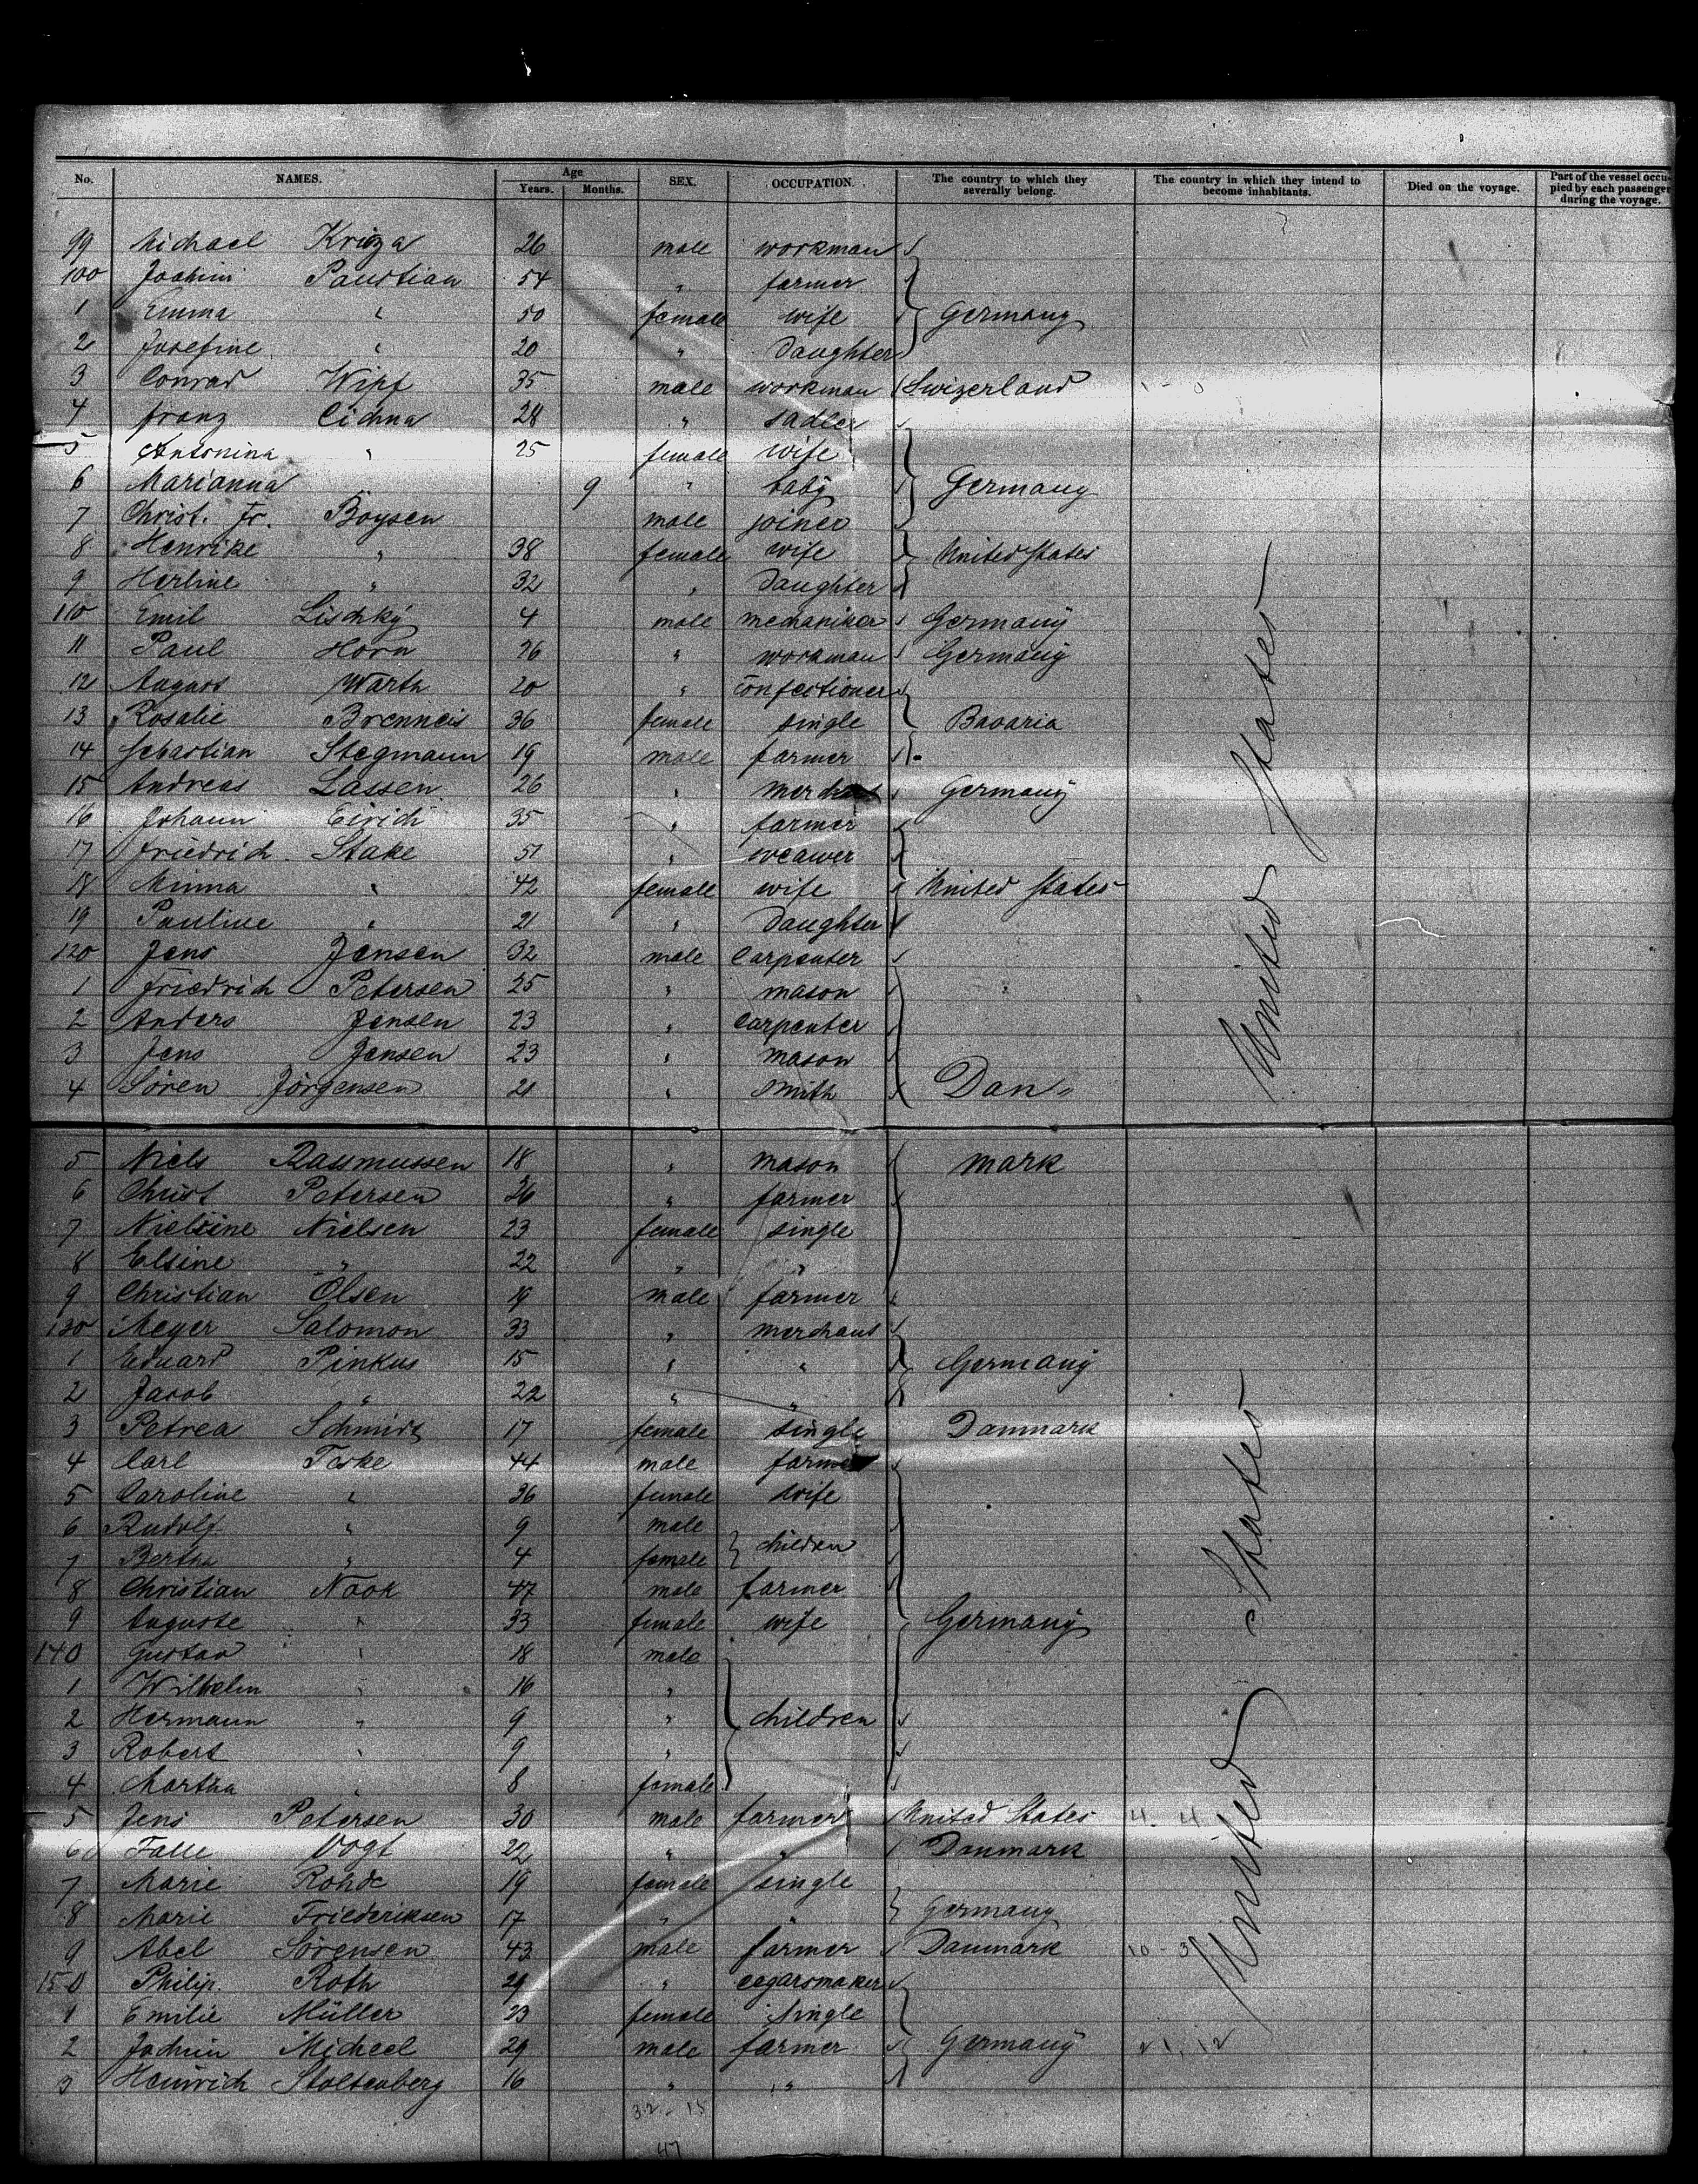 No. NAMES. Age Years. Months. SEX. OCCUPATION. The country to which they severally belong. The country in which they intend to become inhabitants. Died on the voyage. Part of the vessel occupied by each passenger during the voyage.
99 Michael Kriza 26 male workman
100 Joachim Paustian 54 " farmer
1 Emma " 50 female wife Germany
2 Josefine " 20 " Daughter
3 Conrad Wipf 35 male workman Swizerland
4 Franz Cichna 28 " sadler
5 Antonina " 25 female wife
6 Marianna 9 " baby Germany
7 Christ. Fr. Boysen male joiner
8 Henrike " 38 female wife United States
9 Herline " 32 " Daughter
110 Emil Lischky 4 male mechaniker Germany
11 Paul Horn 26 " workman Germany
12 August Warth 20 " confectioner
13 Rosalie Brenneis 36 female single Bavaria
14 Sebastian Stegmann 19 male farmer
15 Andreas Lassen 26 " merchant Germany
16 Johann Eirich 35 " farmer
17 Friedrich Stake 51 " weawer
18 Minna " 42 female wife United States
19 Pauline " 21 " Daughter
120 Jens Jensen 32 male Carpenter
1 Friedrich Petersen 25 " mason
2 Anders Jensen 23 " Carpenter
3 Jens Jensen 23 " mason
4 Sören Jörgensen 21 " Smith Dan=
United States
5 Niels Rassmussen 18 " mason mark
6 Christ Petersen 26 " farmer
7 Nielsine Nielsen 23 female single
8 Elsine " 22 " "
9 Christian Olsen 19 male farmer
130 Meyer Salomon 33 " merchant
1 Eduard Pinkus 15 " " Germany
2 Jacob " 22 " "
3 Petrea Schmidt 17 female single Danmark
4 Carl Teske 44 male farmer
5 Caroline " 36 female wife
6 Rudolf " 9 male children
7 Bertha " 4 female
8 Christian Nook 47 male farmer
9 Auguste " 33 female wife Germany
140 Gustav " 18 male
1 Wilhelm " 16 "
2 Hermann " 9 " children
3 Robert " 9 "
4 Martha " 8 female
5 Jens Petersen 30 male farmer United States
6 Falle Vogt 22 " " Danmark
7 Marie Rohde 19 female single
8 Marie Friederiksen 17 " " Germany
9 Abel Sörensen 43 male farmer Danmark
150 Philip Roth 29 " cegarsmaker
1 Emilie Müller 23 female single
2 Jochim Micheel 29 male farmer Germany
3 Heinrich Stoltenberg 16 " "
United States
32 - 15
47